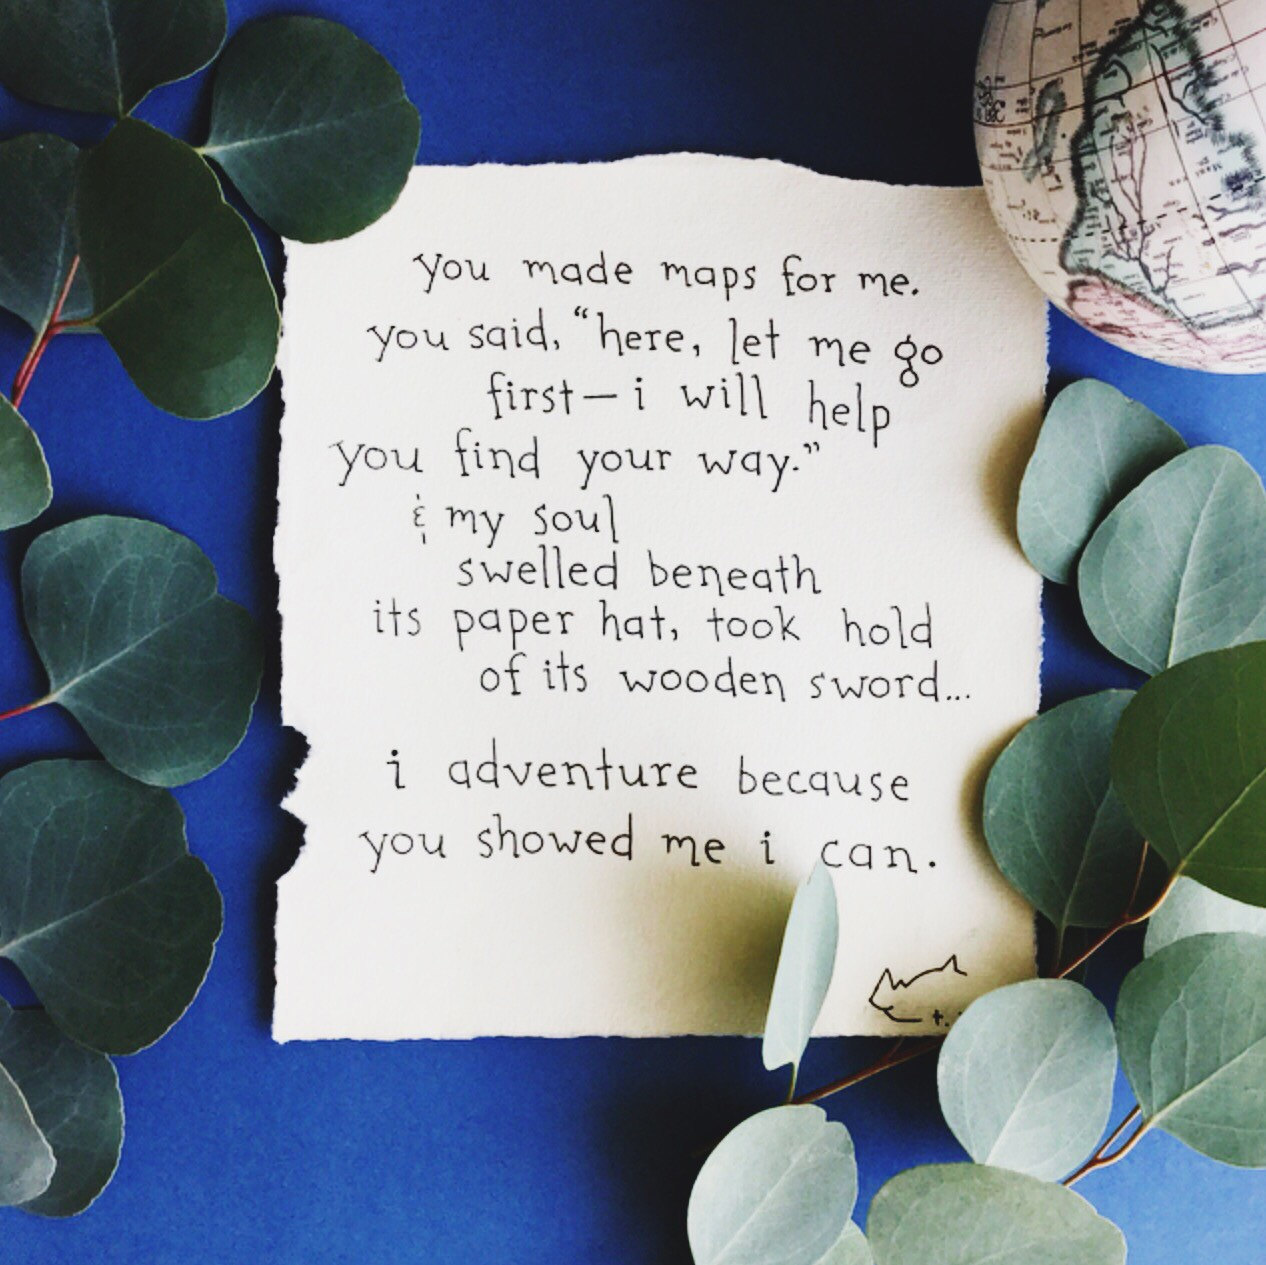 you made maps for me.
you said, “here, let me go
first—i will help
you find your way.”
& my soul
swelled beneath
its paper hat, took hold
of its wooden sword...
i adventure because
you showed me i can.